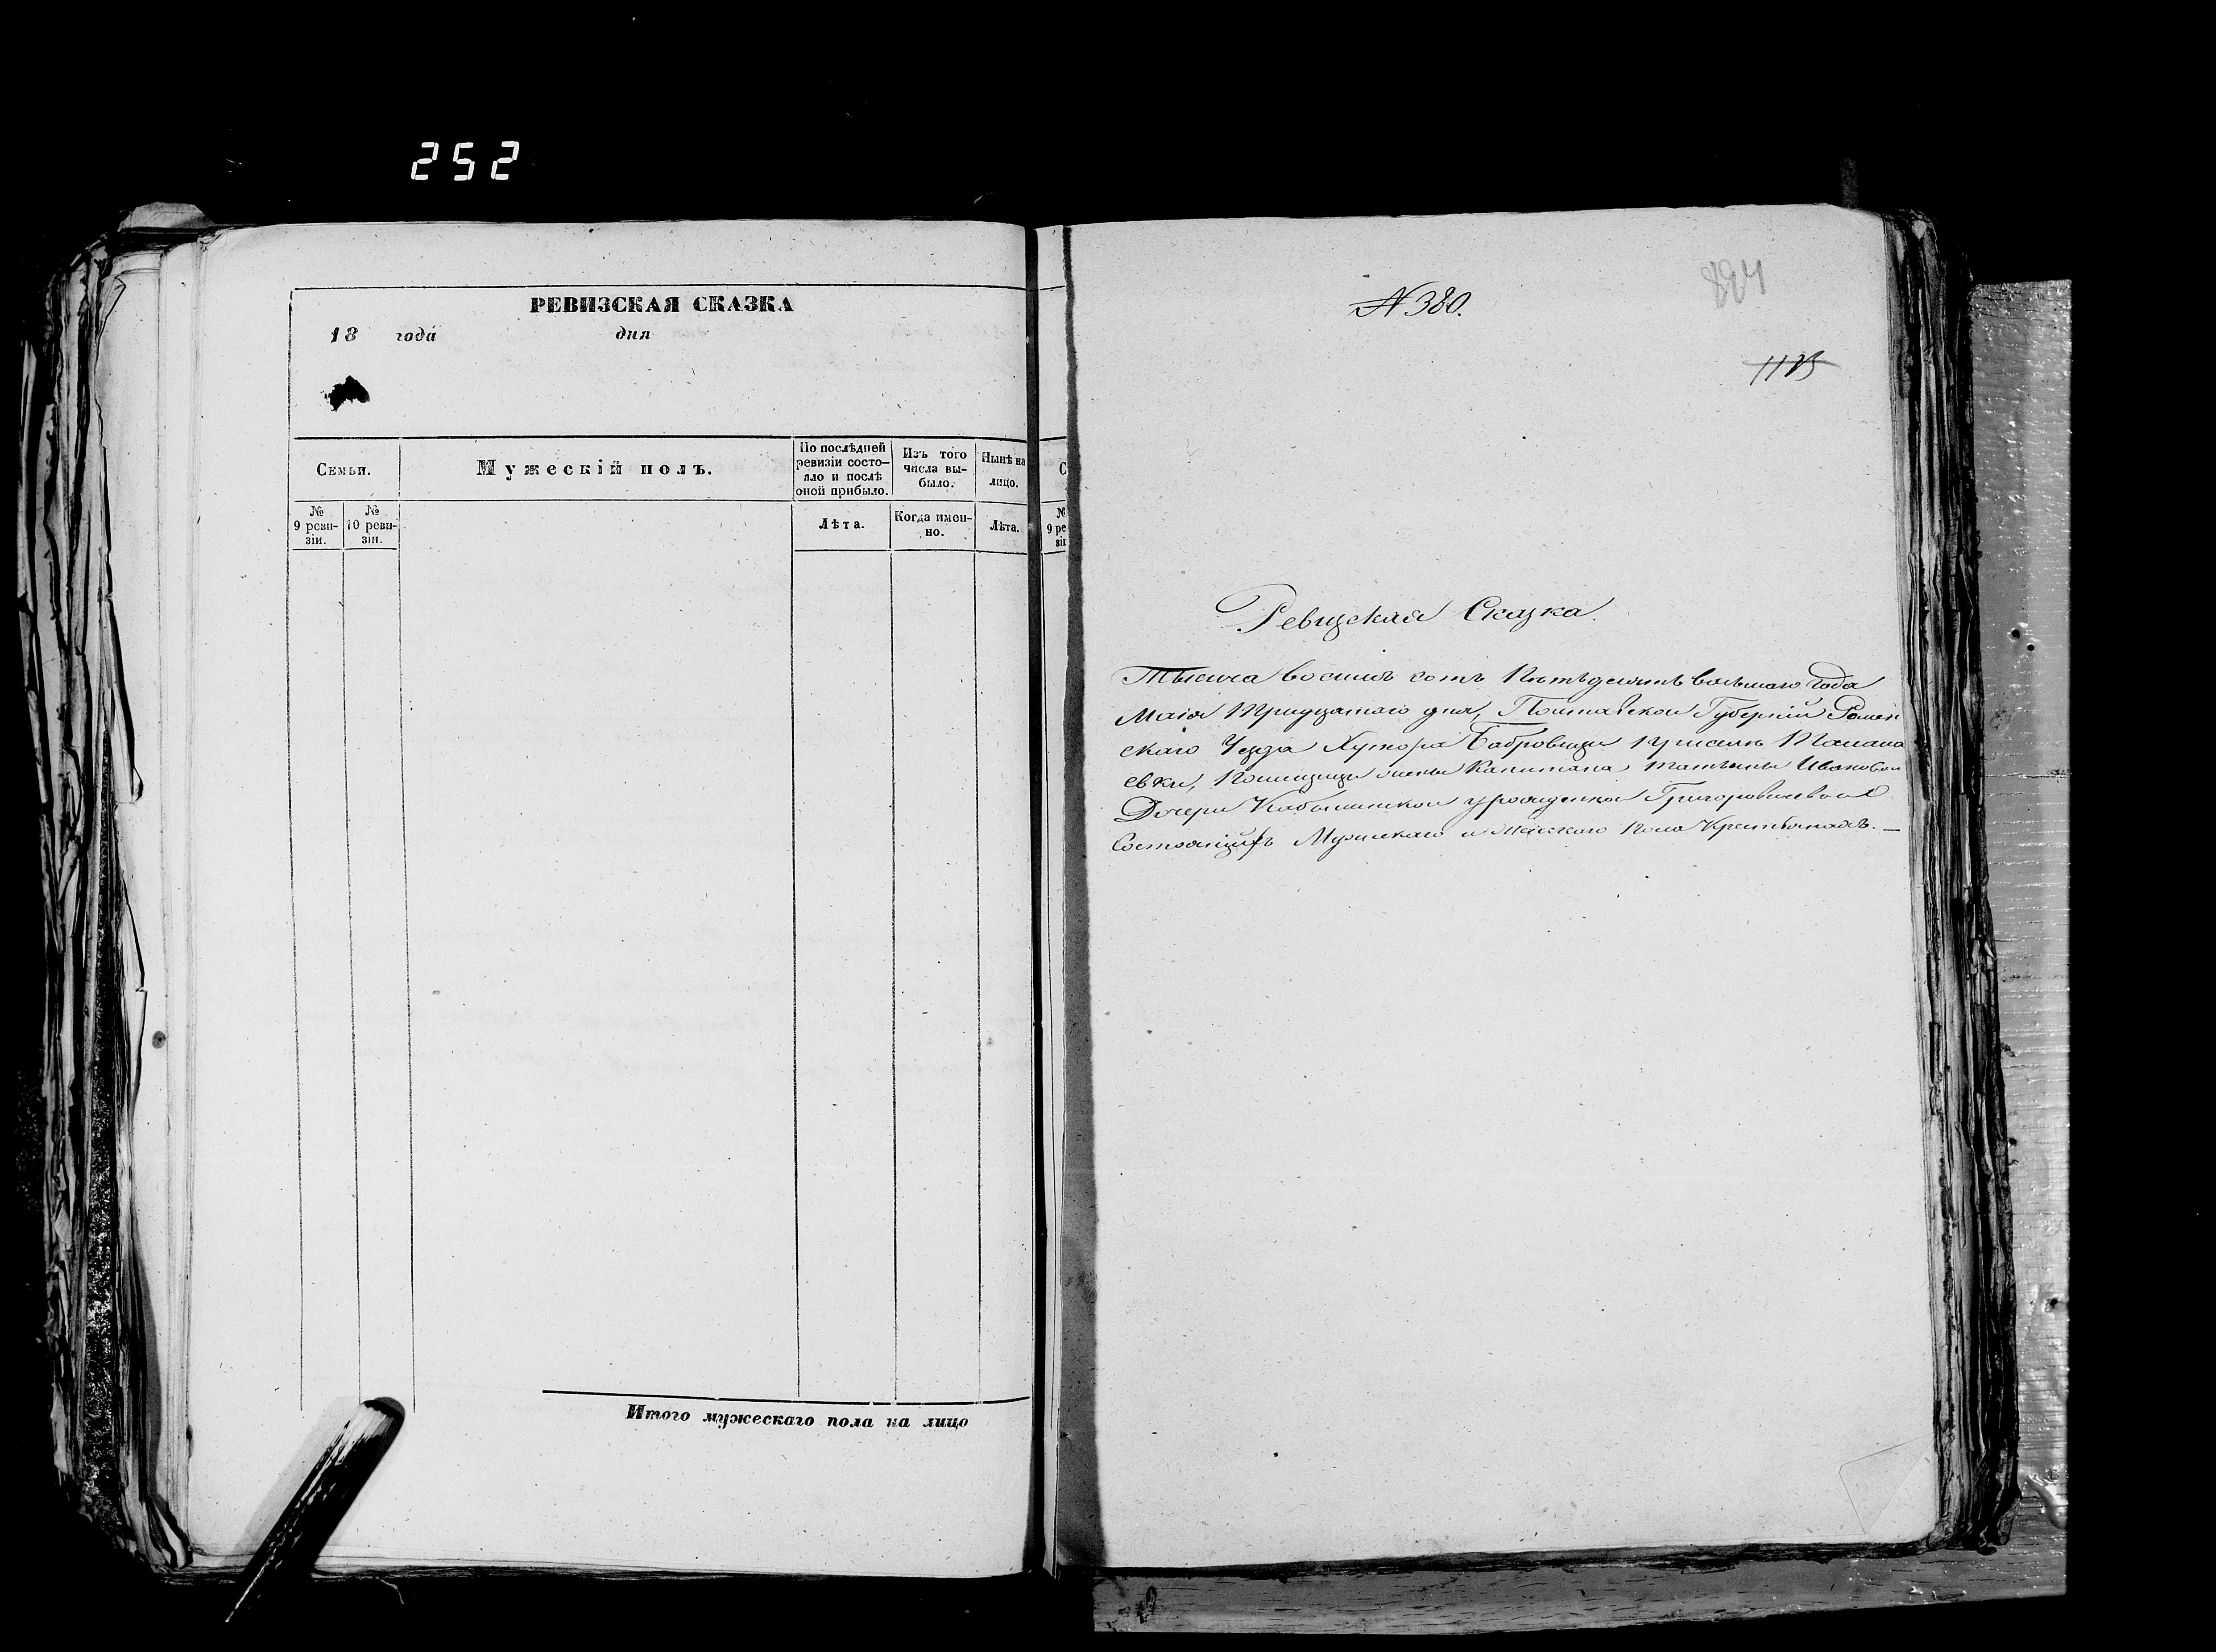 252
РЕВИЗСКАЯ СКАЗКА
18 года дня
Семьи.
Мужескій полъ.
По послѣдней ревизіи состо-
яло и послѣ
оной прибыло.
Изъ того
числа вы-
было.
Нынѣ на
лицо.
№
9 реви-
зіи.
№
10 реви-
зіи.
Лѣта.
Когда имен-
но.
Лѣта.
Итого мужескаго пола на лицо
N 380.
894
Ревизская Сказка.
Тысяча восимъ сотъ Пятьдесятъ восьмаго Года
Маія Тридцатаго дня, Полтавской Губерніи Ромен
скаго Уезда Хутора Бобровицы
евки, Помещицы жены Капитана Татьяны Ивановой
Дочери урожденной Григоровичевой
Состоящихъ Мужскаго и Женскаго пола Крестьянахъ. —